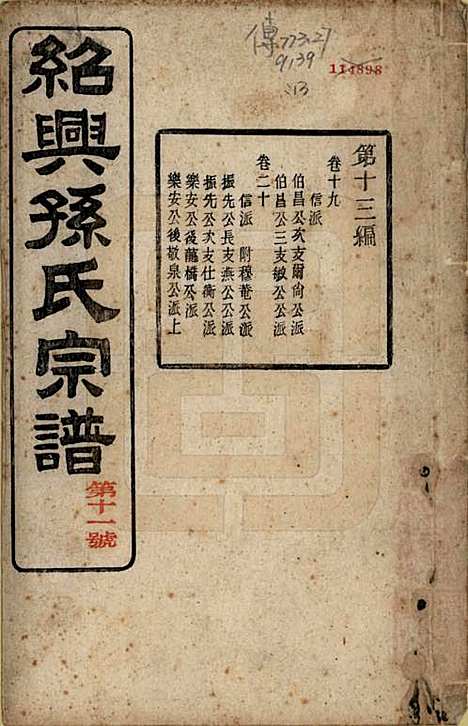 紹興孫氏宗譜
第十一號
傳773.27
9139
:13
114898
第十三編
卷十九
信派
伯昌公次支爾尙公派
伯昌公三支敏公公派
卷二十
信派 附穆菴公派
振先公長支燕公公派
振先公次支仕衡公派
樂安公後蘭橋公派
樂安公後敬泉公派上